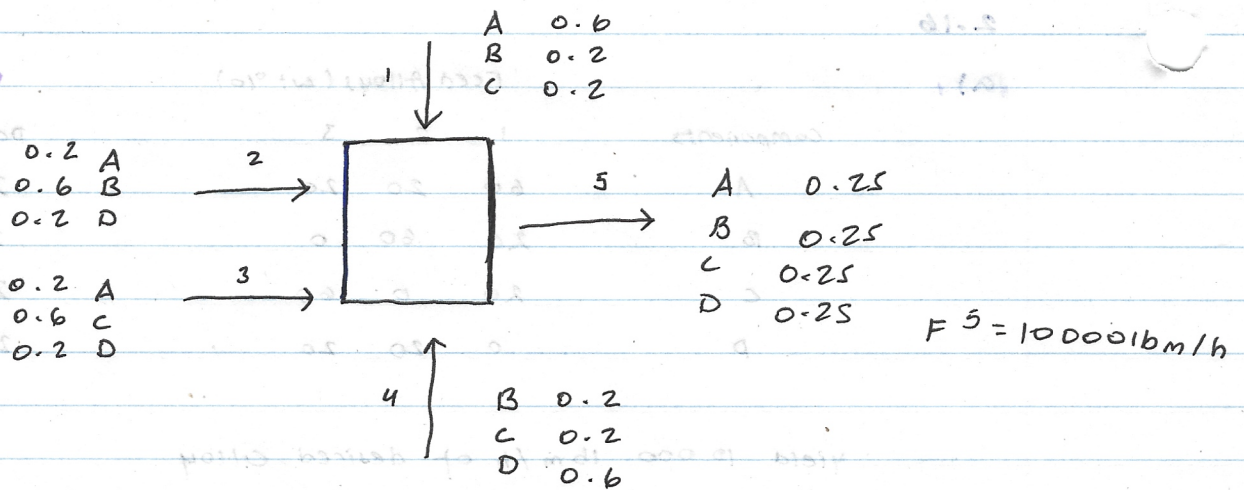 A 0.6
B 0.2
C 0.2
1
0.2 A
0.6 B
0.2 D
2
0.2 A
0.6 C
0.2 D
3
5
A 0.25
B 0.25
C 0.25
D 0.25
F 5 = 10000lbm/h
4
B 0.2
C 0.2
D 0.6